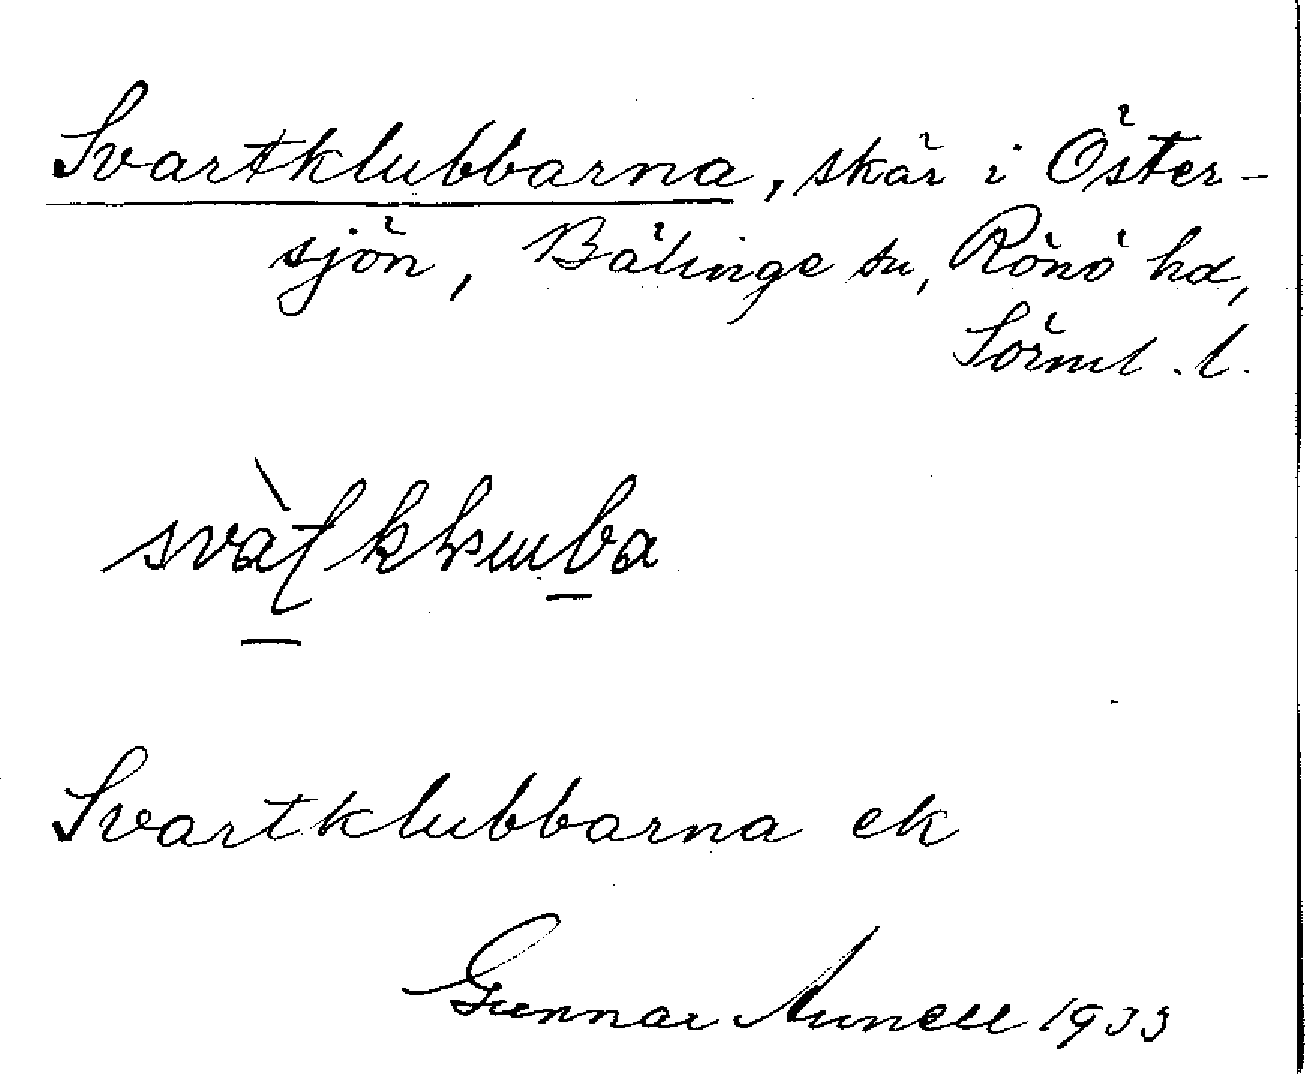 Svartklubbarna, skär i Öster-
sjön, Bälinge sn, Rönö hd,
Sörml. l.
Svartklubbarna ek
Gunnar Aunell 1933